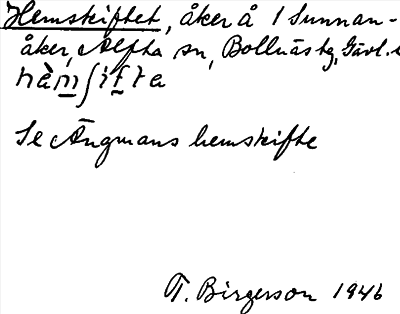 Hemskiftet, åker å 1 Sunnan-
åker, Alfta sn, Bollnäs tg, Gävl. l
hèm∫ifta
Se Ängmans hemskifte
T. Birgerson 1946